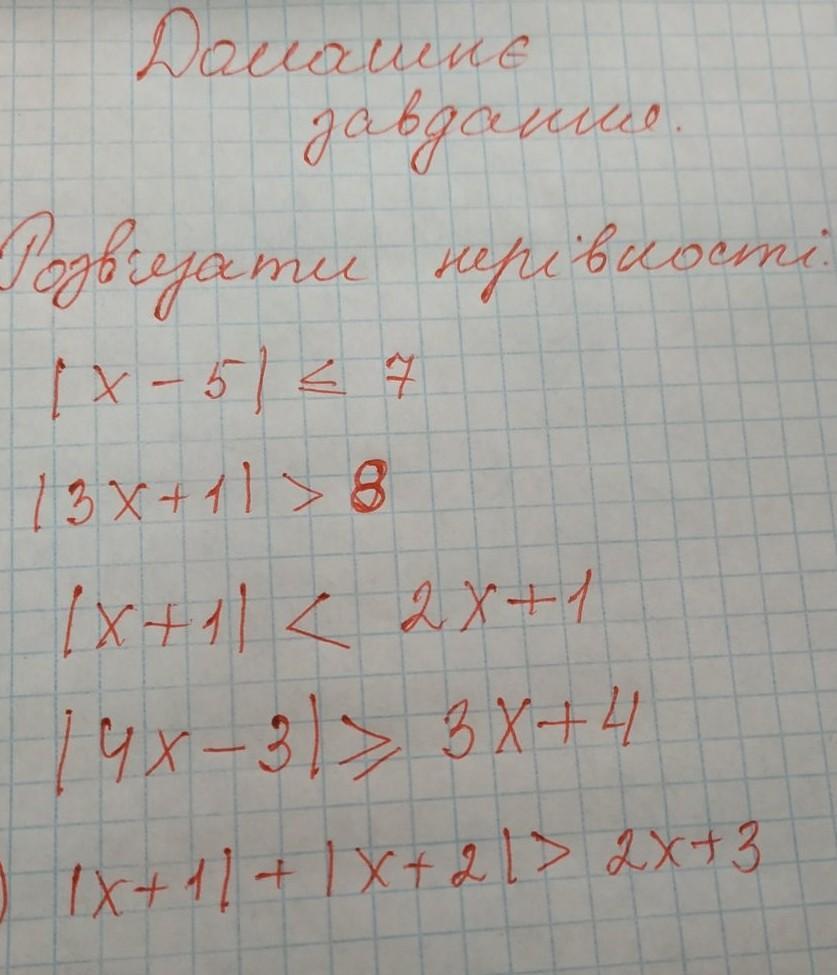 Домашнє
завдання.
Розв'язати нерівності:
|x - 5| ≤ 7
|3x+1| > 8
|x+1| < 2x+1
|4x-3| ⩾ 3x+4
) |x+1| + |x+2| > 2x+3